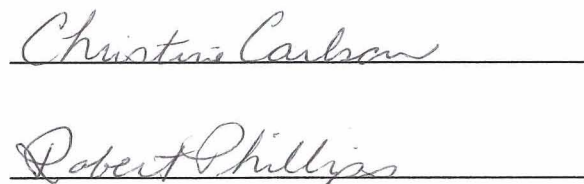 Christine Carlson
Robert Phillips